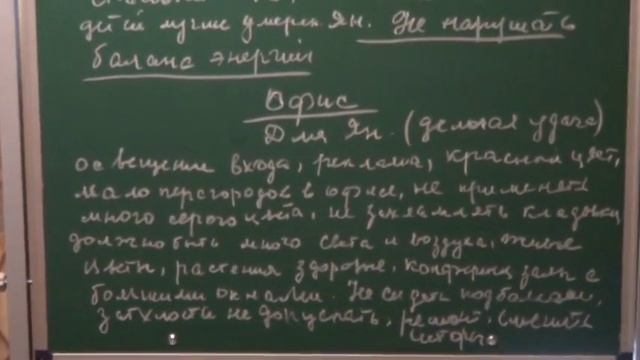 детей лучше умерен Ян. Не нарушать
баланс энергии
Офис
Для Ян. (деловая удача)
освещение входа, реклама, красный цвет,
мало перегородок в офисе, не применять
много серого цвета, не захламлять кладовки
должно быть много света и воздуха, живые
цветы, растения здоровые, конференц залы с
большими окнами. Не сидеть под балками,
затхлости не допускать, ремонт, сменить
шторы